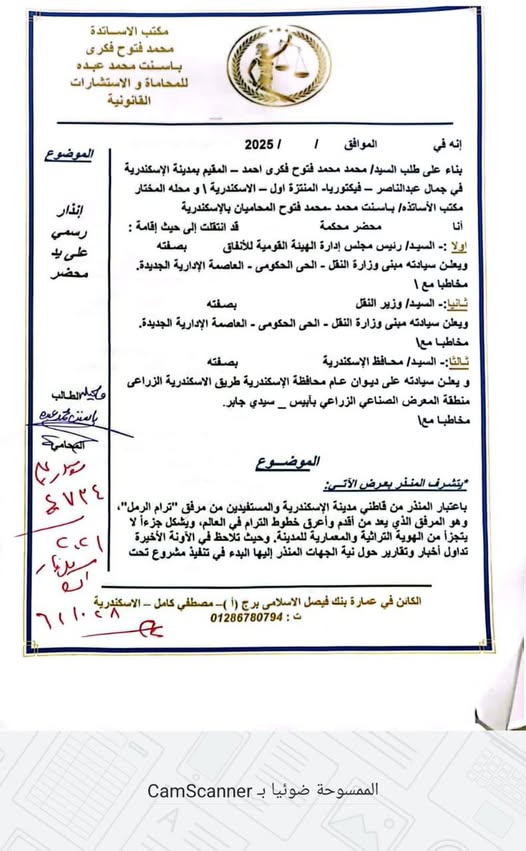 مكتب الاســـاتدة
محمد فتوح فكرى
باسنت محمد عبده
للمحاماة و الاستشارات
القانونية
إنه في الموافق / / 2025
الموضوع
إنذار
رسمي
على يد
محضر
بناء على طلب السيد/ محمد محمد فتوح فكرى احمد – المقيم بمدينة الإسكندرية
في جمال عبدالناصر – فيكتوريا- المنتزة اول – الاسكندرية \ و محله المختار
مكتب الأساتذه/ باسنت محمد -محمد فتوح المحاميان بالإسكندرية
أنا محضر محكمة قد انتقلت إلى حيث إقامة :
اولا :- السيد/ رئيس مجلس إدارة الهيئة القومية للأنفاق بصفته
ويعلن سيادته مبنى وزارة النقل - الحى الحكومى - العاصمة الإدارية الجديدة.
مخاطبا مع \
ثانيا:- السيد/ وزير النقل بصفته
ويعلن سيادته مبنى وزارة النقل - الحى الحكومى - العاصمة الإدارية الجديدة.
مخاطبا مع\
ثالثا:- السيد/ محافظ الإسكندرية بصفته
و يعلن سيادته على ديوان عام محافظة الإسكندرية طريق الاسكندرية الزراعى
منطقة المعرض الصناعي الزراعي بأبيس _ سيدي جابر.
مخاطبا مع\
الطالب
المحامي
الموضــوع
*يتشرف المنذر بعرض الآتـي:
باعتبار المنذر من قاطني مدينة الإسكندرية والمستفيدين من مرفق "ترام الرمل"،
وهو المرفق الذي يعد من أقدم وأعرق خطوط الترام في العالم، ويشكل جزءاً لا
يتجزأ من الهوية التراثية والمعمارية للمدينة. وحيث تلاحظ في الآونة الأخيرة
تداول أخبار وتقارير حول نية الجهات المنذر إليها البدء في تنفيذ مشروع تحت
الكائن في عمارة بنك فيصل الاسلامى برج (أ )– مصطفي كامل – الاسكندرية
ت : 01286780794
الممسوحة ضوئيا بـ CamScanner